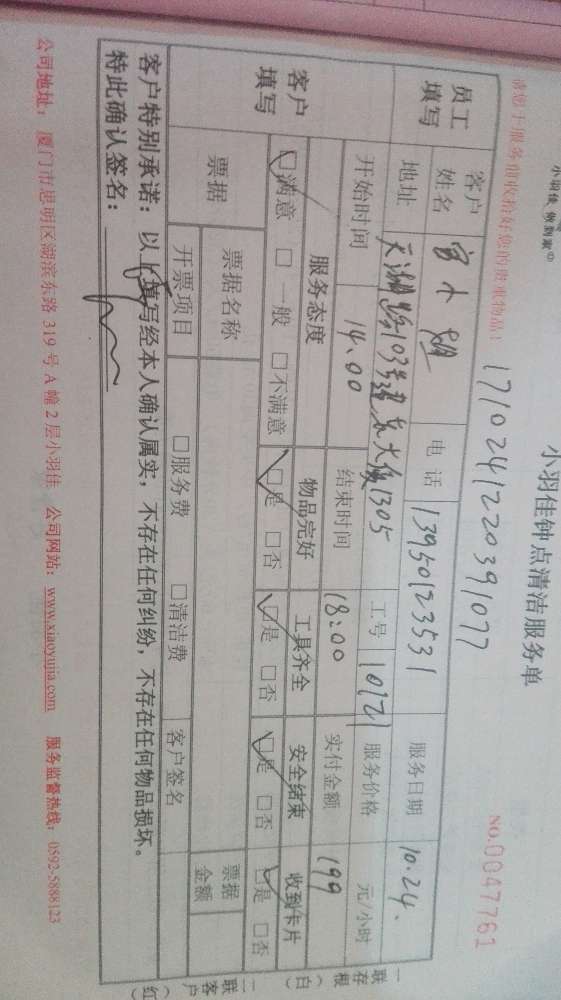 小羽佳 做到家
小羽佳钟点清洁服务单
请您于服务前收拾好您的贵重物品！
1710241220391077
NO.0047761
员工填写
客户姓名
电话 13950123531
服务日期 10.24.
地址
工号 10121
服务价格 元/小时
开始时间 14:00
结束时间 18:00
实付金额 199
客户填写
服务态度 物品完好 工具齐全 安全结束 收到卡片
☑满意 □一般 □不满意 ☑是 □否 ☑是 □否 ☑是 □否 ☑是 □否
票据 票据名称 票据金额
开票项目 □服务费 □清洁费 客户签名
客户特别承诺：以上填写经本人确认属实，不存在任何纠纷，不存在任何物品损坏。
特此确认签名：
公司地址：厦门市思明区湖滨东路 319 号 A 幢 2 层小羽佳 公司网站：www.xiaoyujia.com 服务监督热线：0592-5888123
一联存根（白）
二联客户（红）